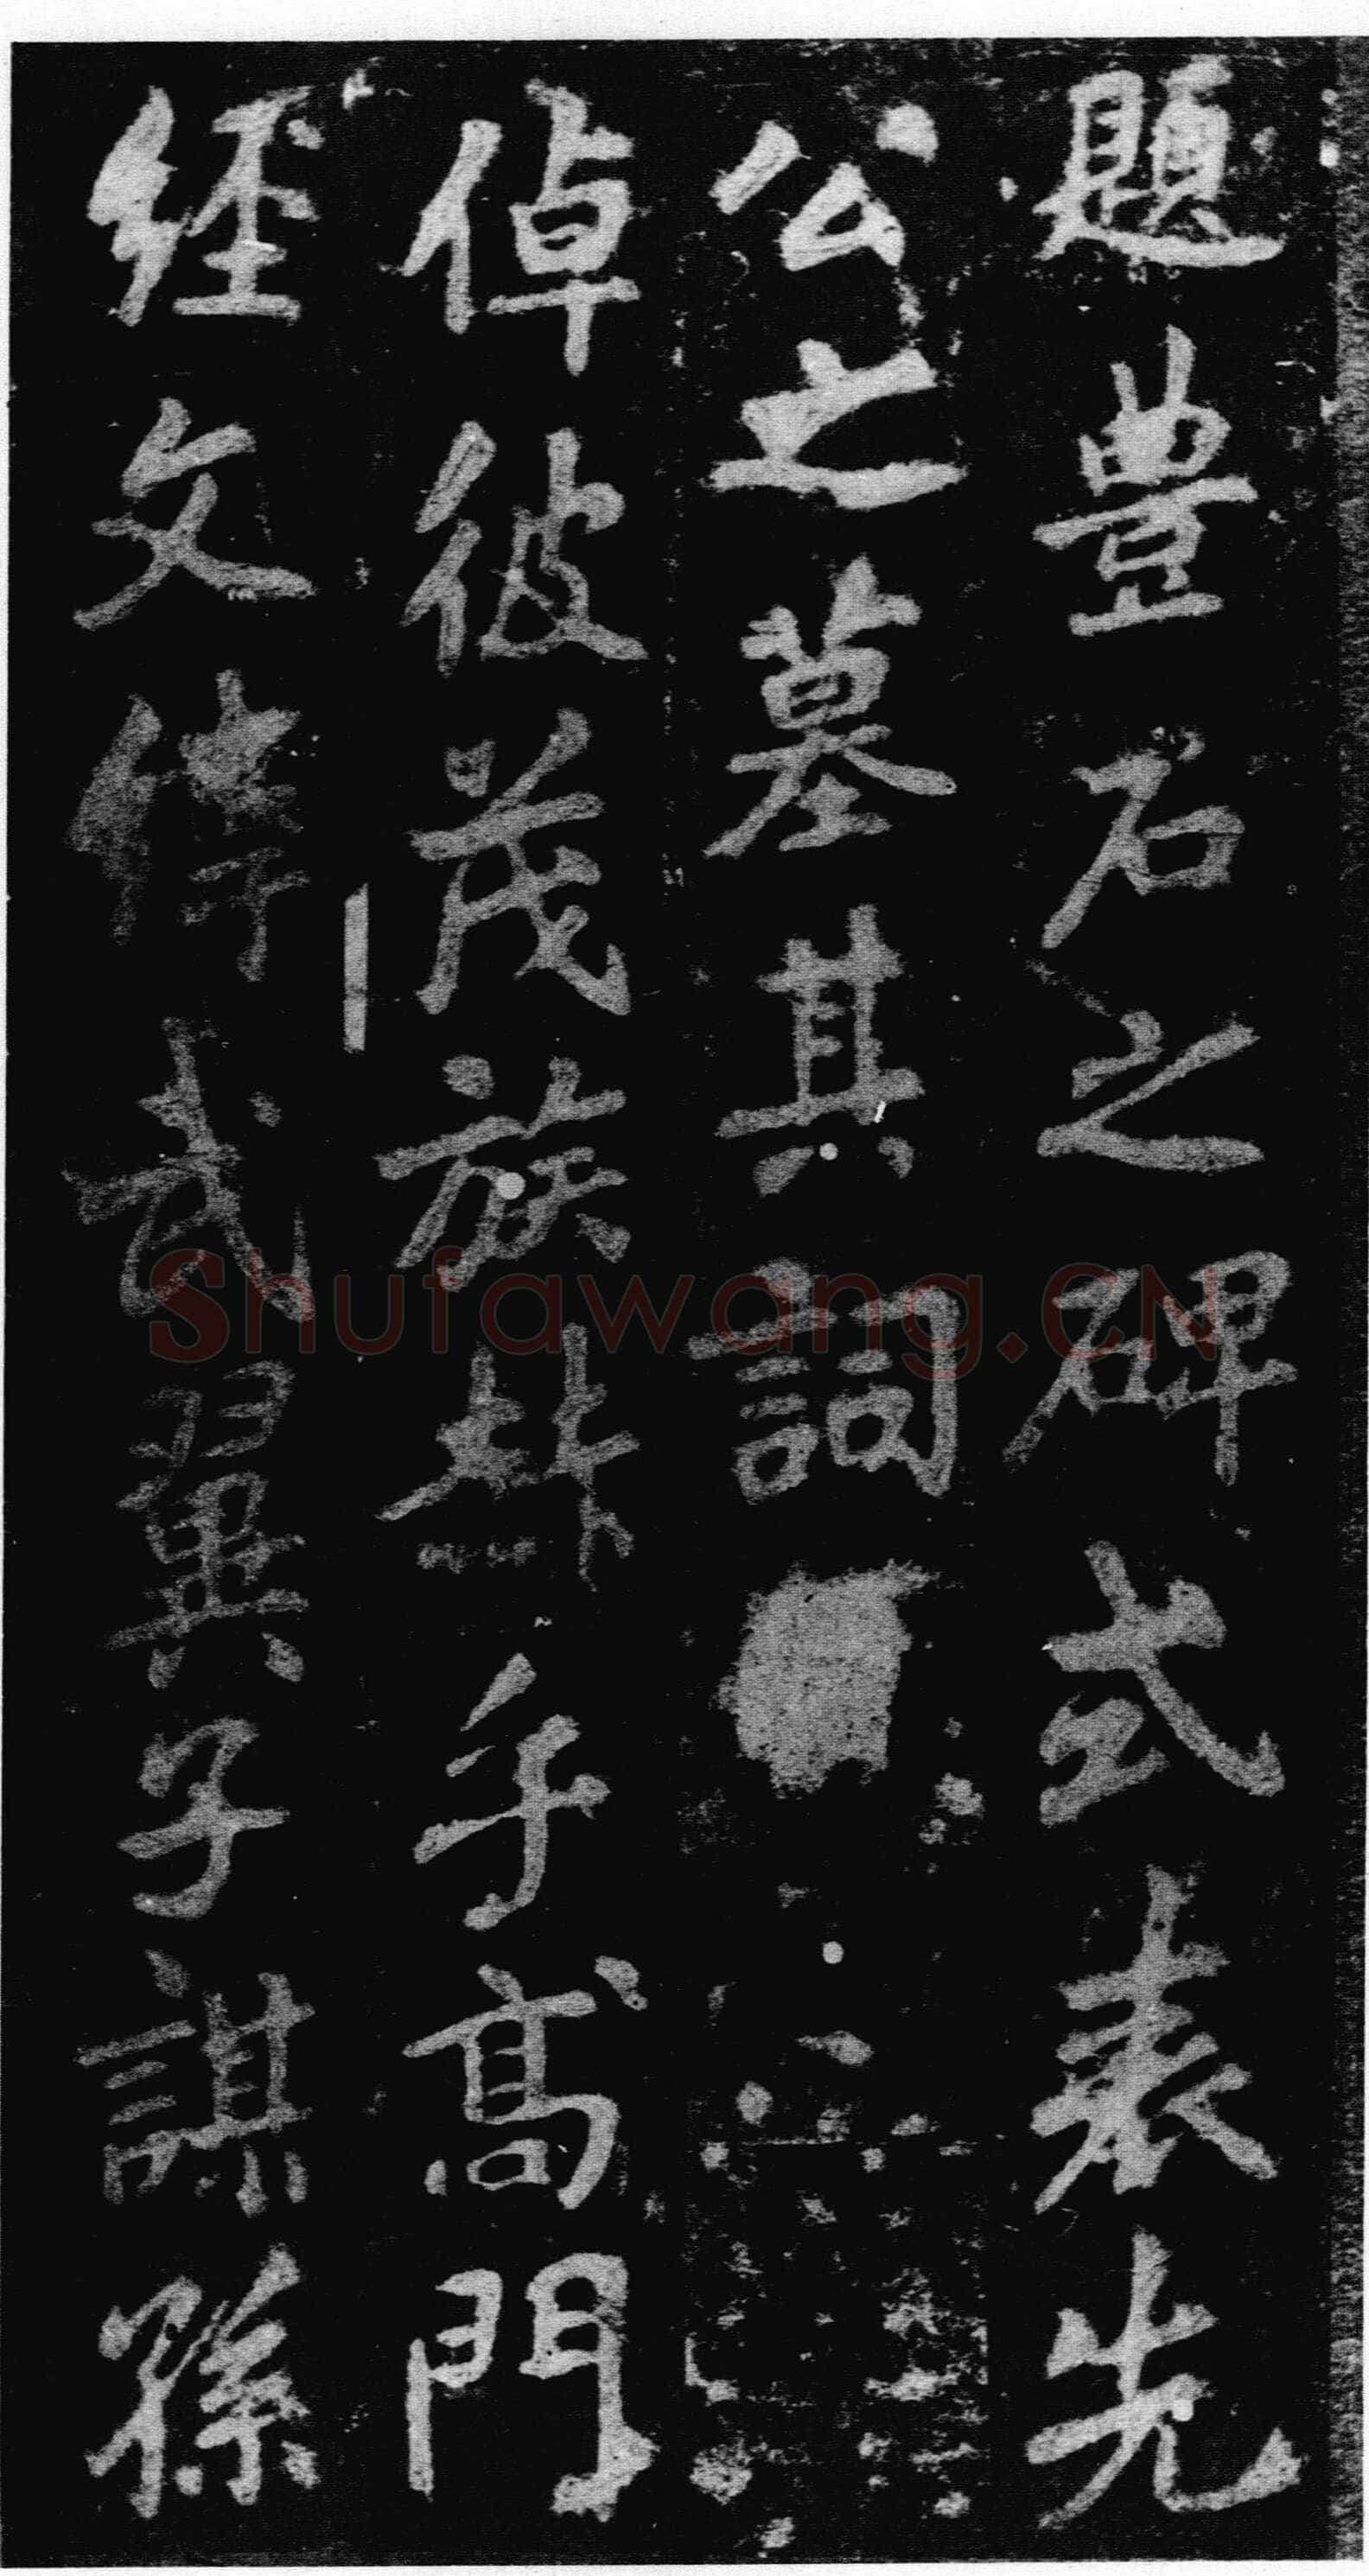 題豊石之碑式表先
公之墓其詞
倬彼茂族赫乎高門
經文緯武翼子謀孫
Shufawang.CN